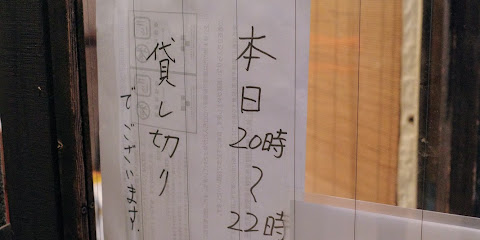 本日20時〜22時
貸し切り
でございます。